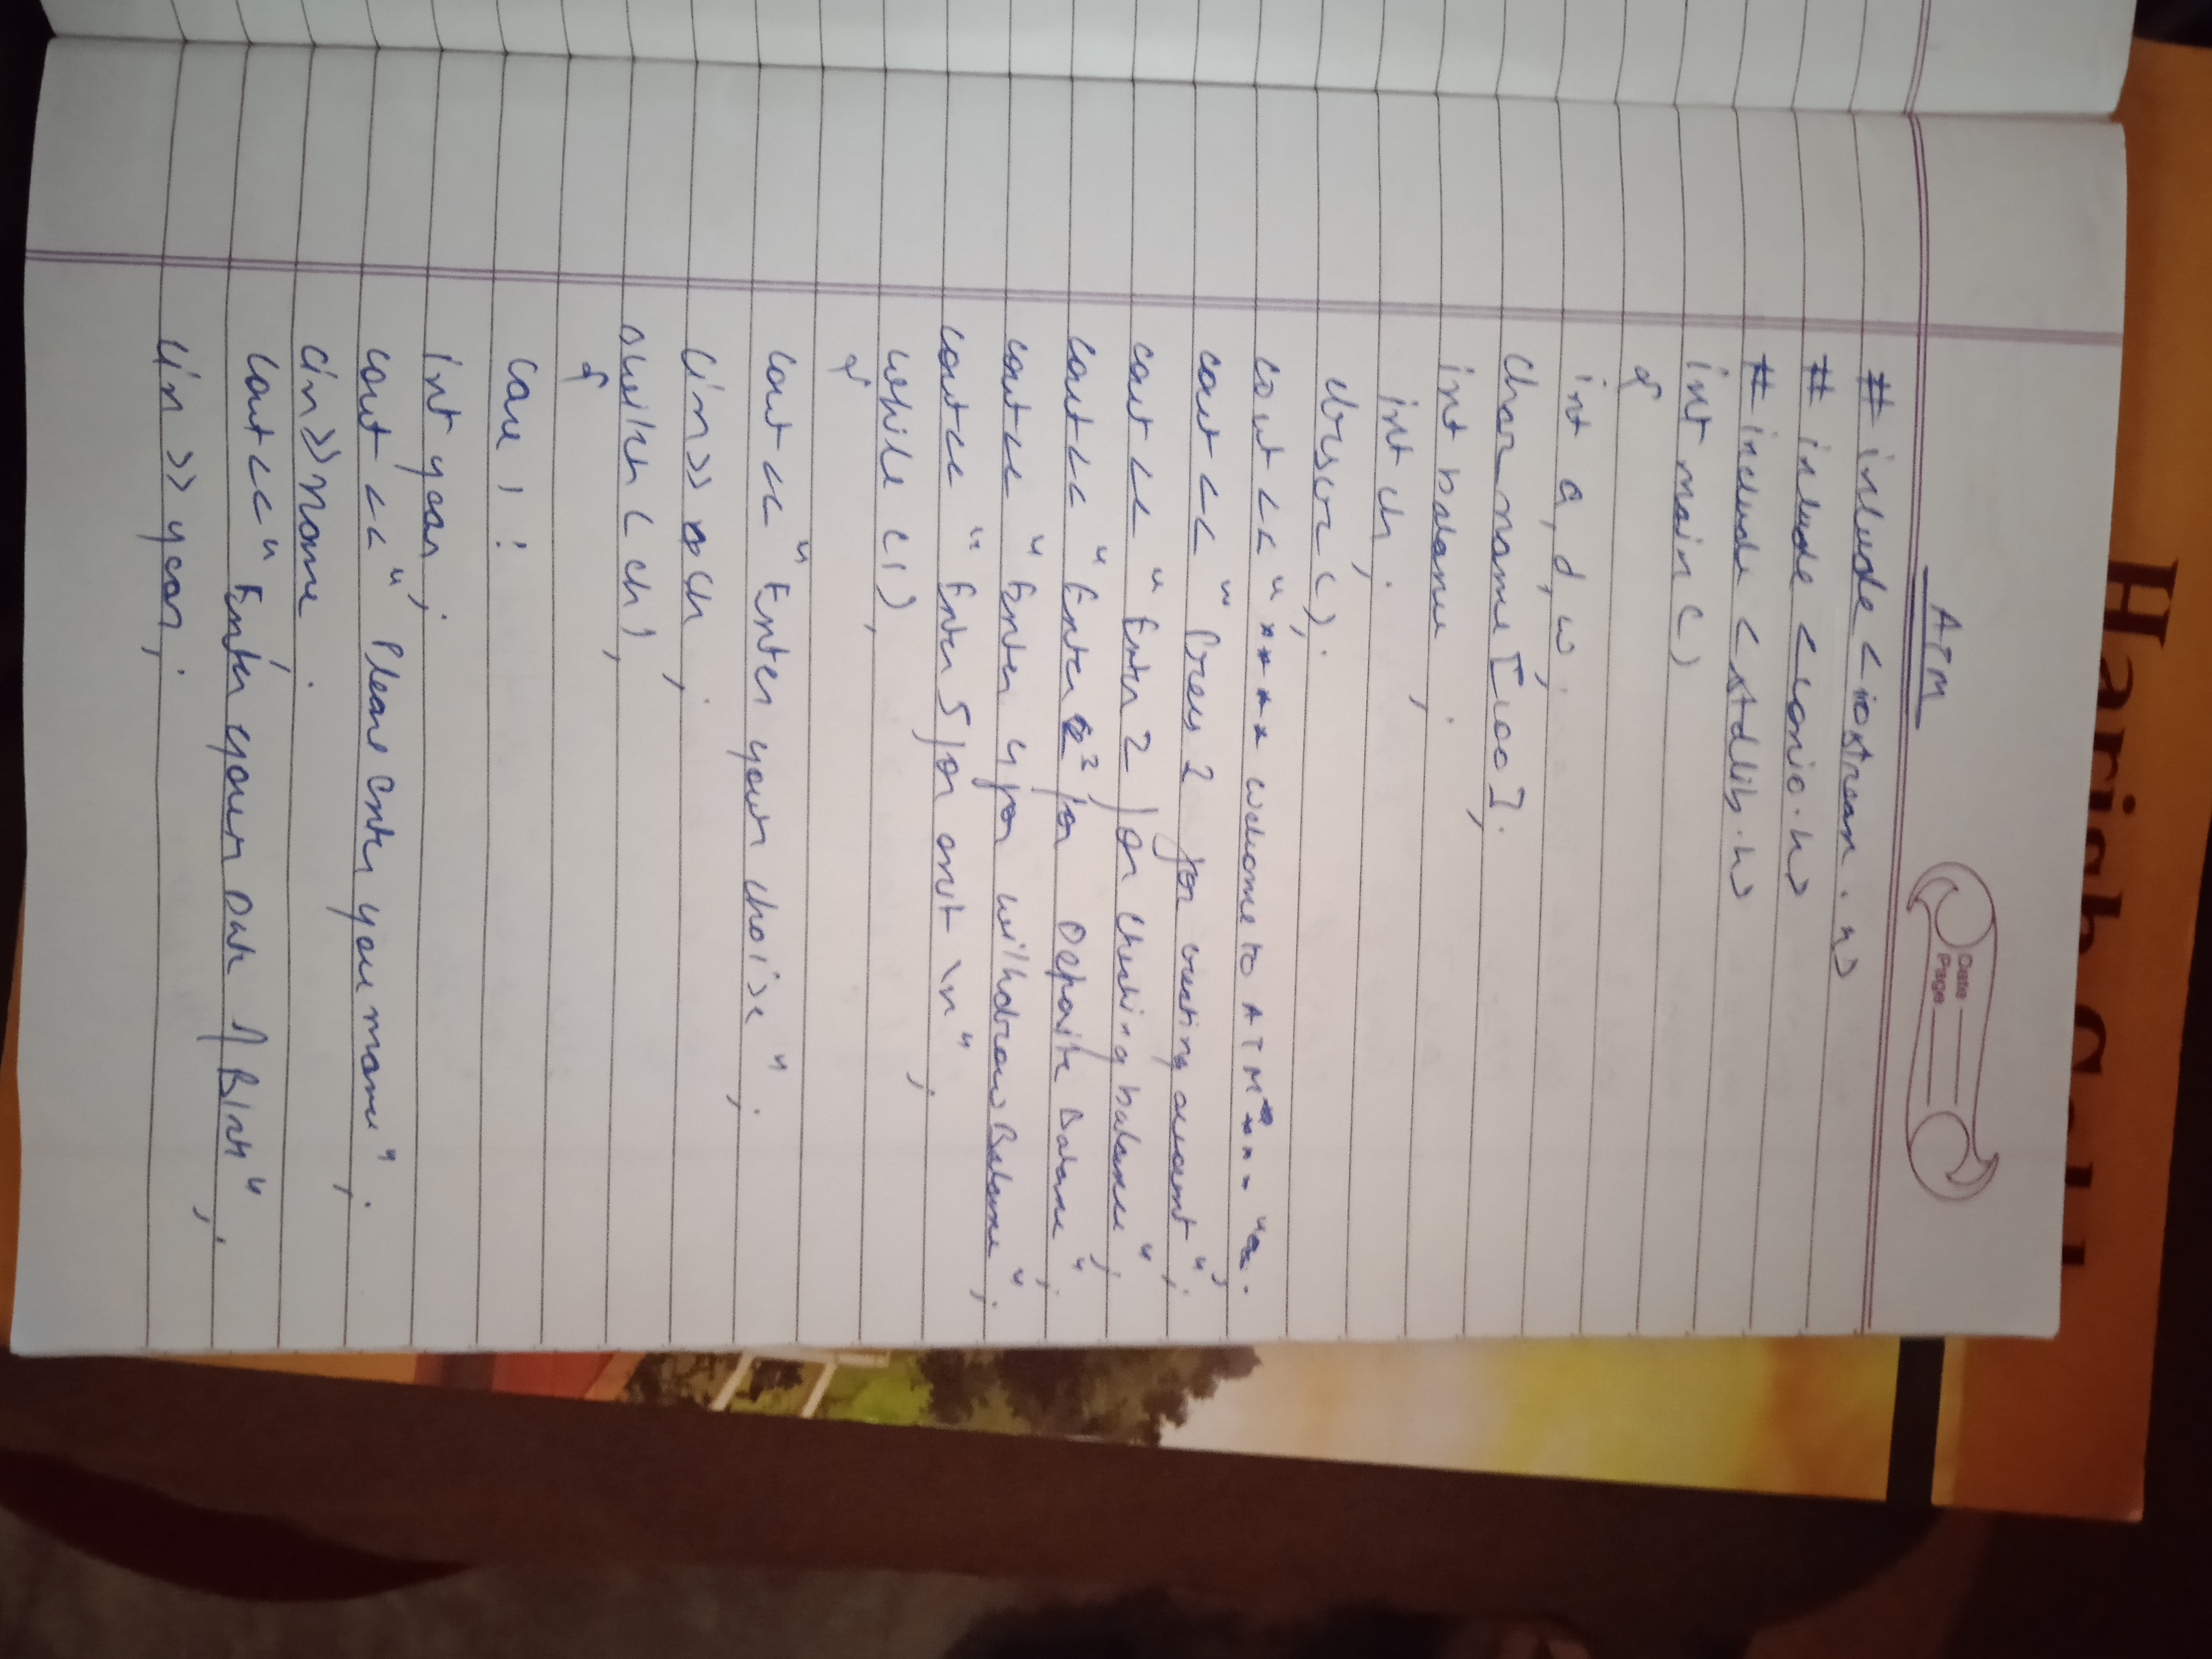 ATM
Date
Page
# include <iostream.h>
# include <conio.h>
# include <stdlib.h>
int main ( )
{
int a, d, w;
char name [100];
int balance;
int ch;
clrscr ( );
cout << "**** welcome to ATM **** ";
cout << " Press 1 for creating account";
cout << " Enter 2 for checking balance";
cout << "Enter 3 for Deposite Balance";
cout << "Enter 4 for withdraw Balance";
cout << " Enter 5 for exit \n";
while (1),
{
cout << " Enter your choise ";
cin >> ch;
switch ( ch),
{
case 1 :
int year;
cout << " Please enter your name";
cin >> name.
cout << " Enter your Date of Birth";
cin >> year;
Harish